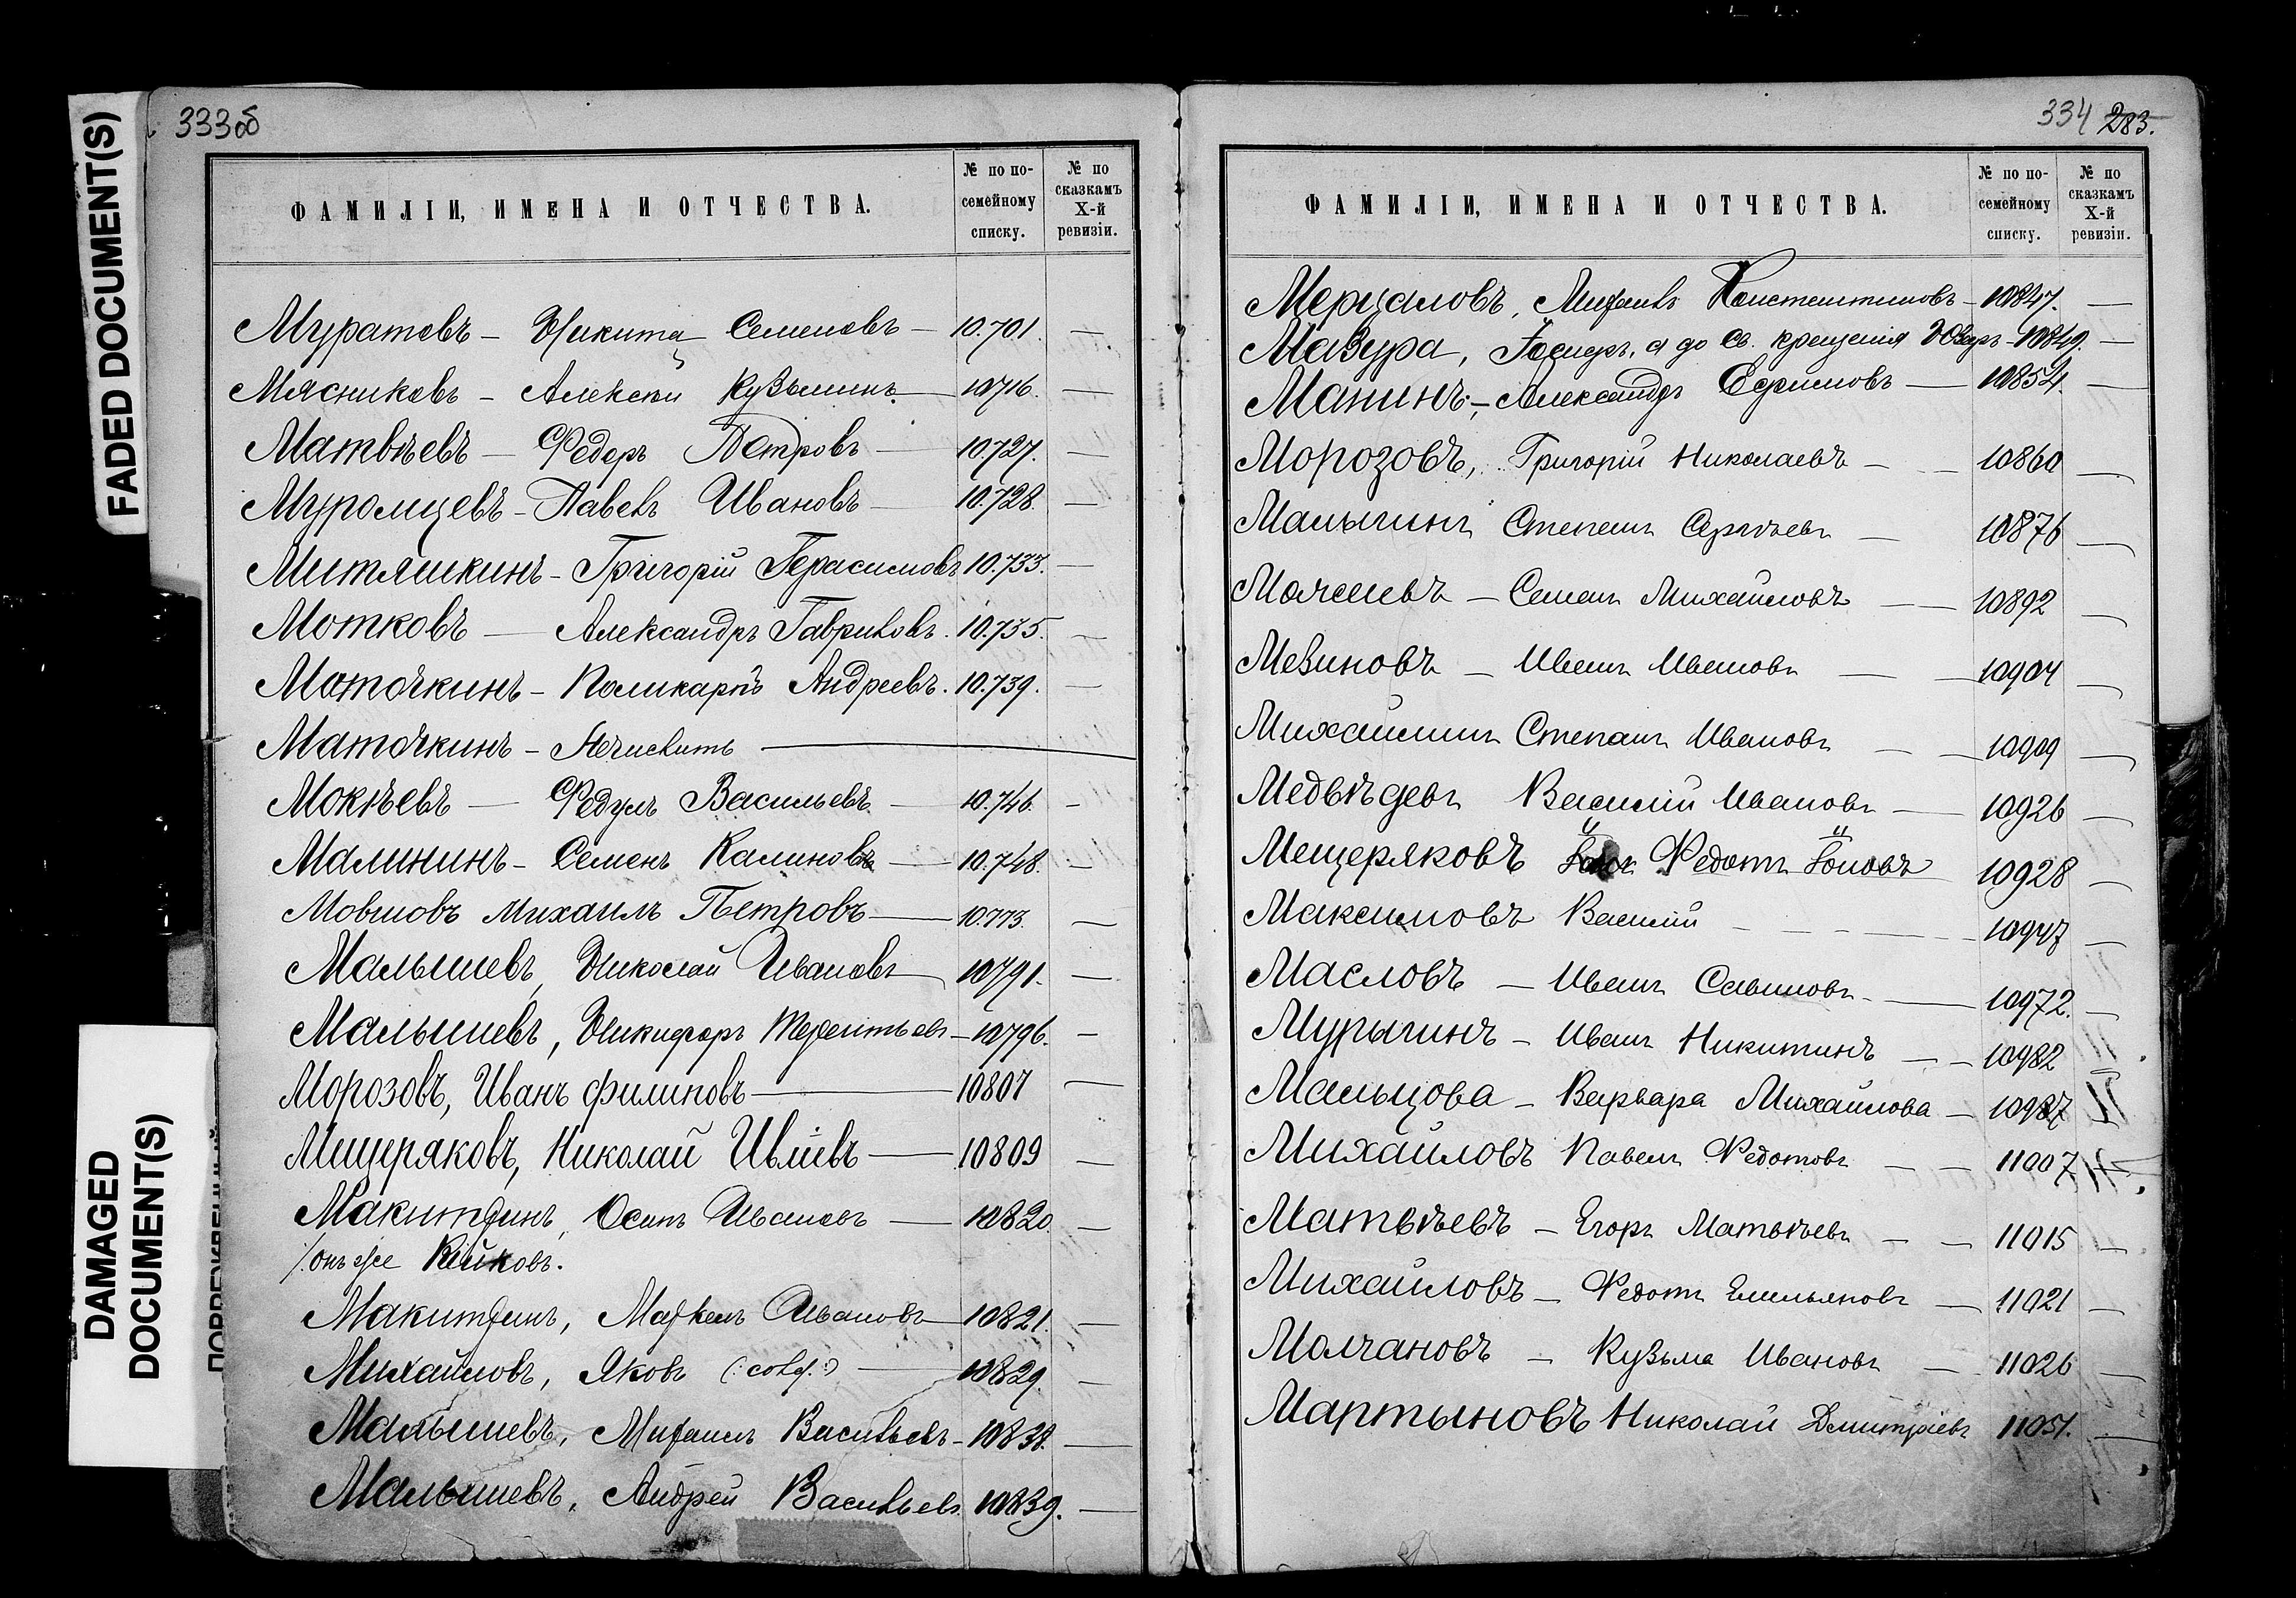 FADED DOCUMENT(S)
DAMAGED
DOCUMENT(S)
333об
ФАМИЛІИ, ИМЕНА И ОТЧЕСТВА. № по по-семейному списку. № по сказкамъ X-й ревизіи.
Муратовъ – Никита Семеновъ — 10.701. —
Мясниковъ – Алексѣй Кузьминъ — 10716. —
Матвѣевъ — Федоръ Петровъ — 10.727. —
Муромцевъ – Павелъ Ивановъ — 10.728. —
Митяшкинъ – Григорій Герасимовъ 10.733. —
Мотковъ — Александръ Гавриловъ. 10.735. —
Маточкинъ – Поликарпъ Андреевъ. 10.739. —
Маточкинъ – Нечислить —
Мокѣевъ — Федулъ Васильевъ — 10.746. –
Малининъ – Семенъ Калиновъ — 10.748. –
Михаилъ Петровъ — 10.773. —
Малышевъ, Николай Ивановъ — 10791. —
Малышевъ, Никифоръ Терентьевъ – 10796. –
Морозовъ, Иванъ Филиповъ — 10807 —
Мищеряковъ, Николай Ивлiевъ — 10809 —
Макитринъ, Осипъ Ивановъ — 10820. —
/:онъ же
Макитринъ, Маркелъ Ивановъ — 10821. —
Михайловъ, Яковъ — 10829. —
Малышевъ, Михаилъ Васильевъ – 10838. —
Малышевъ, Андрей Васильевъ. 10839. —
334 283.
ФАМИЛІИ, ИМЕНА И ОТЧЕСТВА. № по по-семейному списку. № по сказкамъ X-й ревизіи.
Мерцаловъ, Михаилъ Константиновъ – 10847. —
Мазура, а до св. крещенія 10849. —
Манинъ, – Александръ Ефимовъ — 10854. —
Морозовъ, Григорій Николаевъ — 10860 —
Малыгинъ Степанъ Сергѣевъ — 10876 —
Семенъ Михайловъ — 10892 —
Мевиновъ – Иванъ Ивановъ — 10904 —
Михайлинъ Степанъ Ивановъ — 10909 —
Медвѣдевъ Василій Ивановъ — 10926 —
Мещеряковъ Федотъ Іоновъ 10928 —
Максимовъ Василій — 10947 —
Масловъ – Иванъ Савиновъ — 10972. —
Мурыгинъ – Иванъ Никитинъ — 10982
Мальцова – Варвара Михайлова – 10987
Михайловъ Павелъ Федотовъ — 11007
Матвѣевъ – Егоръ Матвѣевъ — 11015 —
Михайловъ – Федотъ Емельяновъ — 11021 —
Молчановъ – Кузьма Ивановъ — 11026 —
Мартыновъ Николай Дмитріевъ 11051. —